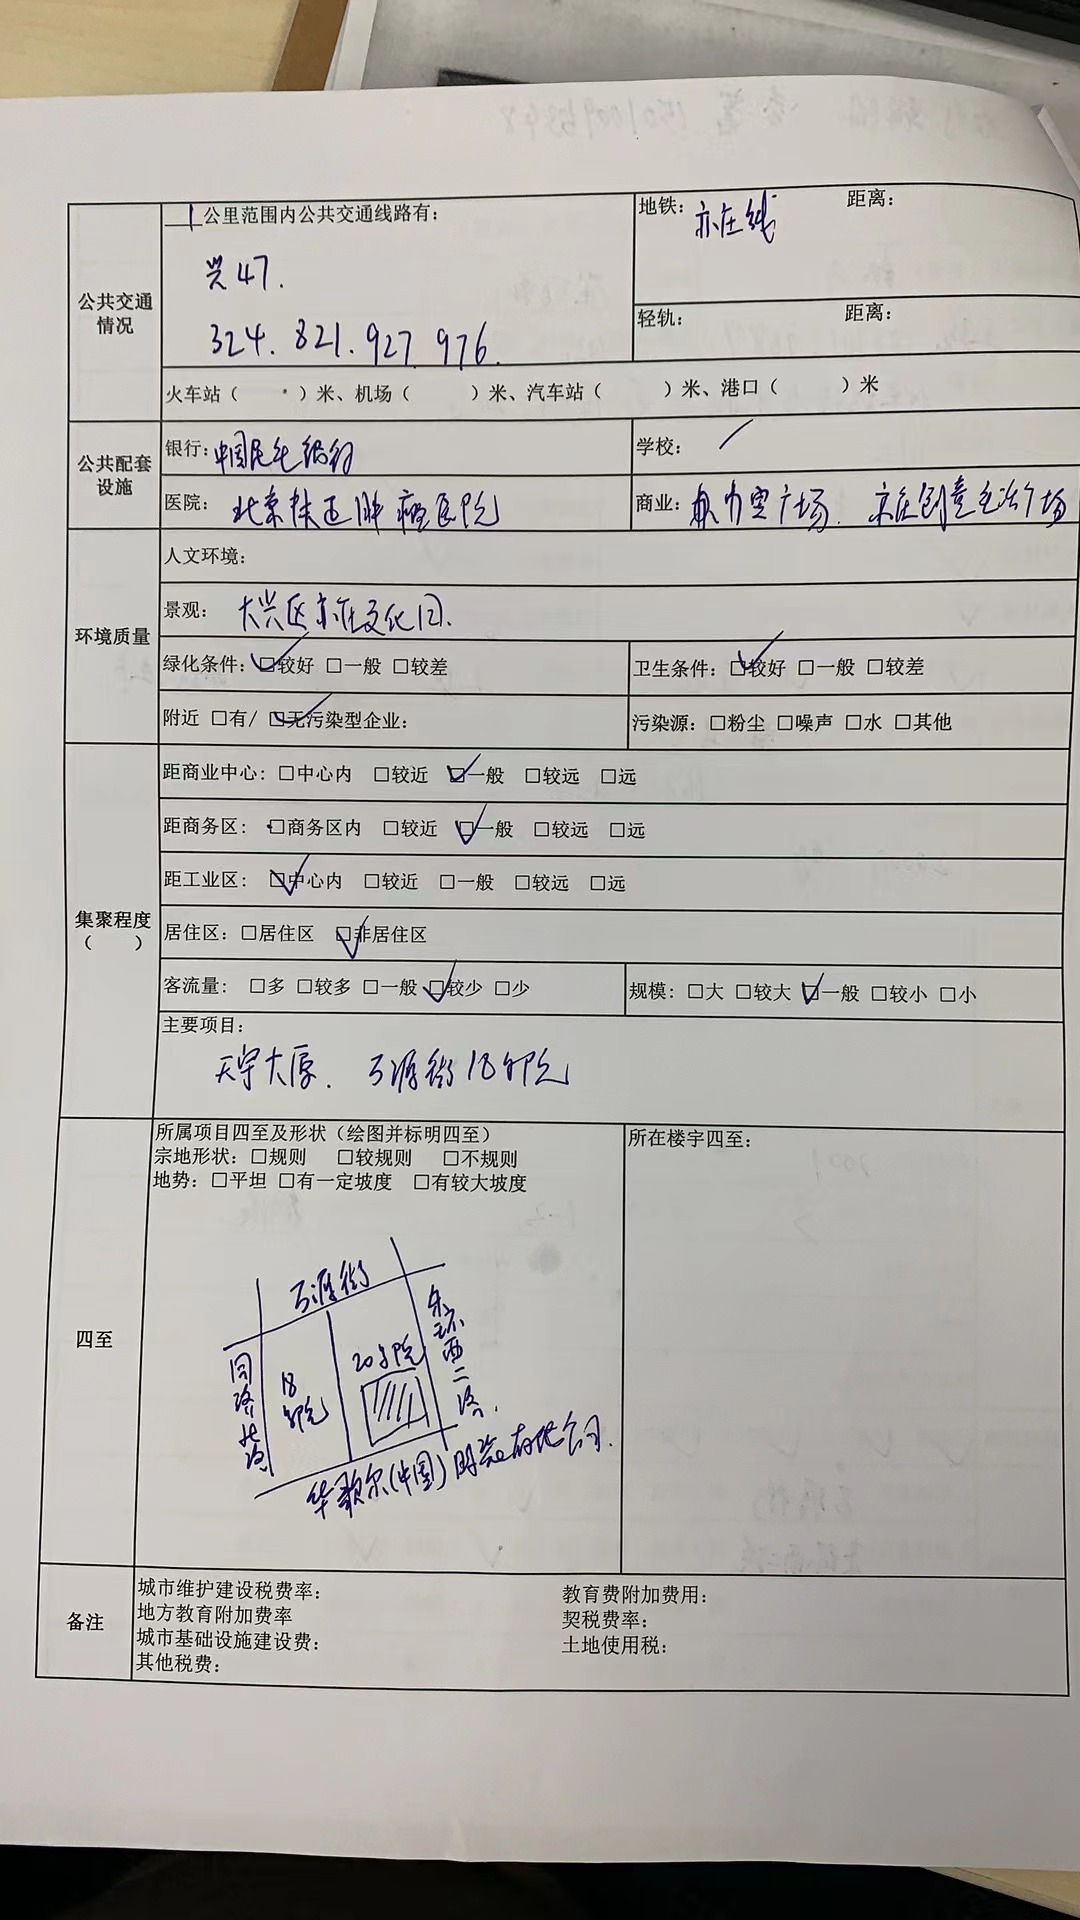 公共交通情况
1公里范围内公共交通线路有：
兴47.
324.821.927.976.
地铁：亦庄线 距离：
轻轨： 距离：
火车站（ ）米、机场（ ）米、汽车站（ ）米、港口（ ）米
公共配套设施
银行：中国民生银行
学校：/
医院：北京扶正肿瘤医院
商业：力宝广场、亦庄创意生活广场
环境质量
人文环境：
景观：大兴区亦庄文化园.
绿化条件：☑较好 □一般 □较差
卫生条件：☑较好 □一般 □较差
附近 □有/ ☑无污染型企业：
污染源：□粉尘 □噪声 □水 □其他
集聚程度（ ）
距商业中心：□中心内 □较近 ☑一般 □较远 □远
距商务区：□商务区内 □较近 ☑一般 □较远 □远
距工业区：☑中心内 □较近 □一般 □较远 □远
居住区：□居住区 ☑非居住区
客流量：□多 □较多 □一般 ☑较少 □少
规模：□大 □较大 ☑一般 □较小 □小
主要项目：
天宇大厦、源街18号院
四至
所属项目四至及形状（绘图并标明四至）
宗地形状：□规则 □较规则 □不规则
地势：□平坦 □有一定坡度 □有较大坡度
源街
同济北路
18号院
20号院
东环西二路.
华歌尔(中国)时装有限公司.
所在楼宇四至：
备注
城市维护建设税费率：
教育费附加费用：
地方教育附加费率
契税费率：
城市基础设施建设费：
土地使用税：
其他税费：